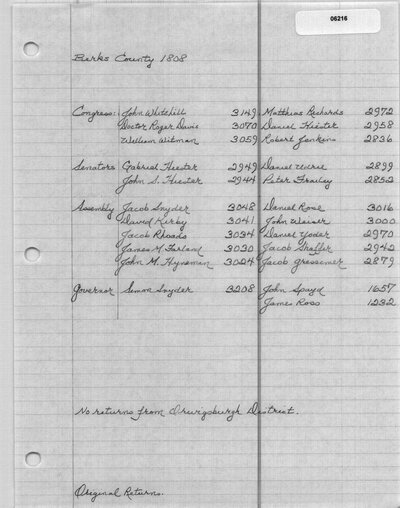 06216
Berks County 1808
Congress: John Whitehill 3149 Matthias Richards 2972
Doctor Roger Davis 3070 Daniel Hiester 2958
William Witman 3059 Robert Jenkins 2836
Senators Gabriel Hiester 2949 Daniel Udree 2899
John S. Hiester 2944 Peter Frailey 2852
Assembly Jacob Snyder 3048 Daniel Rose 3016
David Kirby 3041 John Weiser 3000
Jacob Rhoads 3034 Daniel Yoder 2970
James M. Farland 3030 Jacob Shaffer 2942
John M. Hyneman 3024 Jacob Gressemer 2879
Governor Simon Snyder 3208 John Spayd 1657
James Ross 1232
No returns from Orwigsburgh District.
Original Returns.